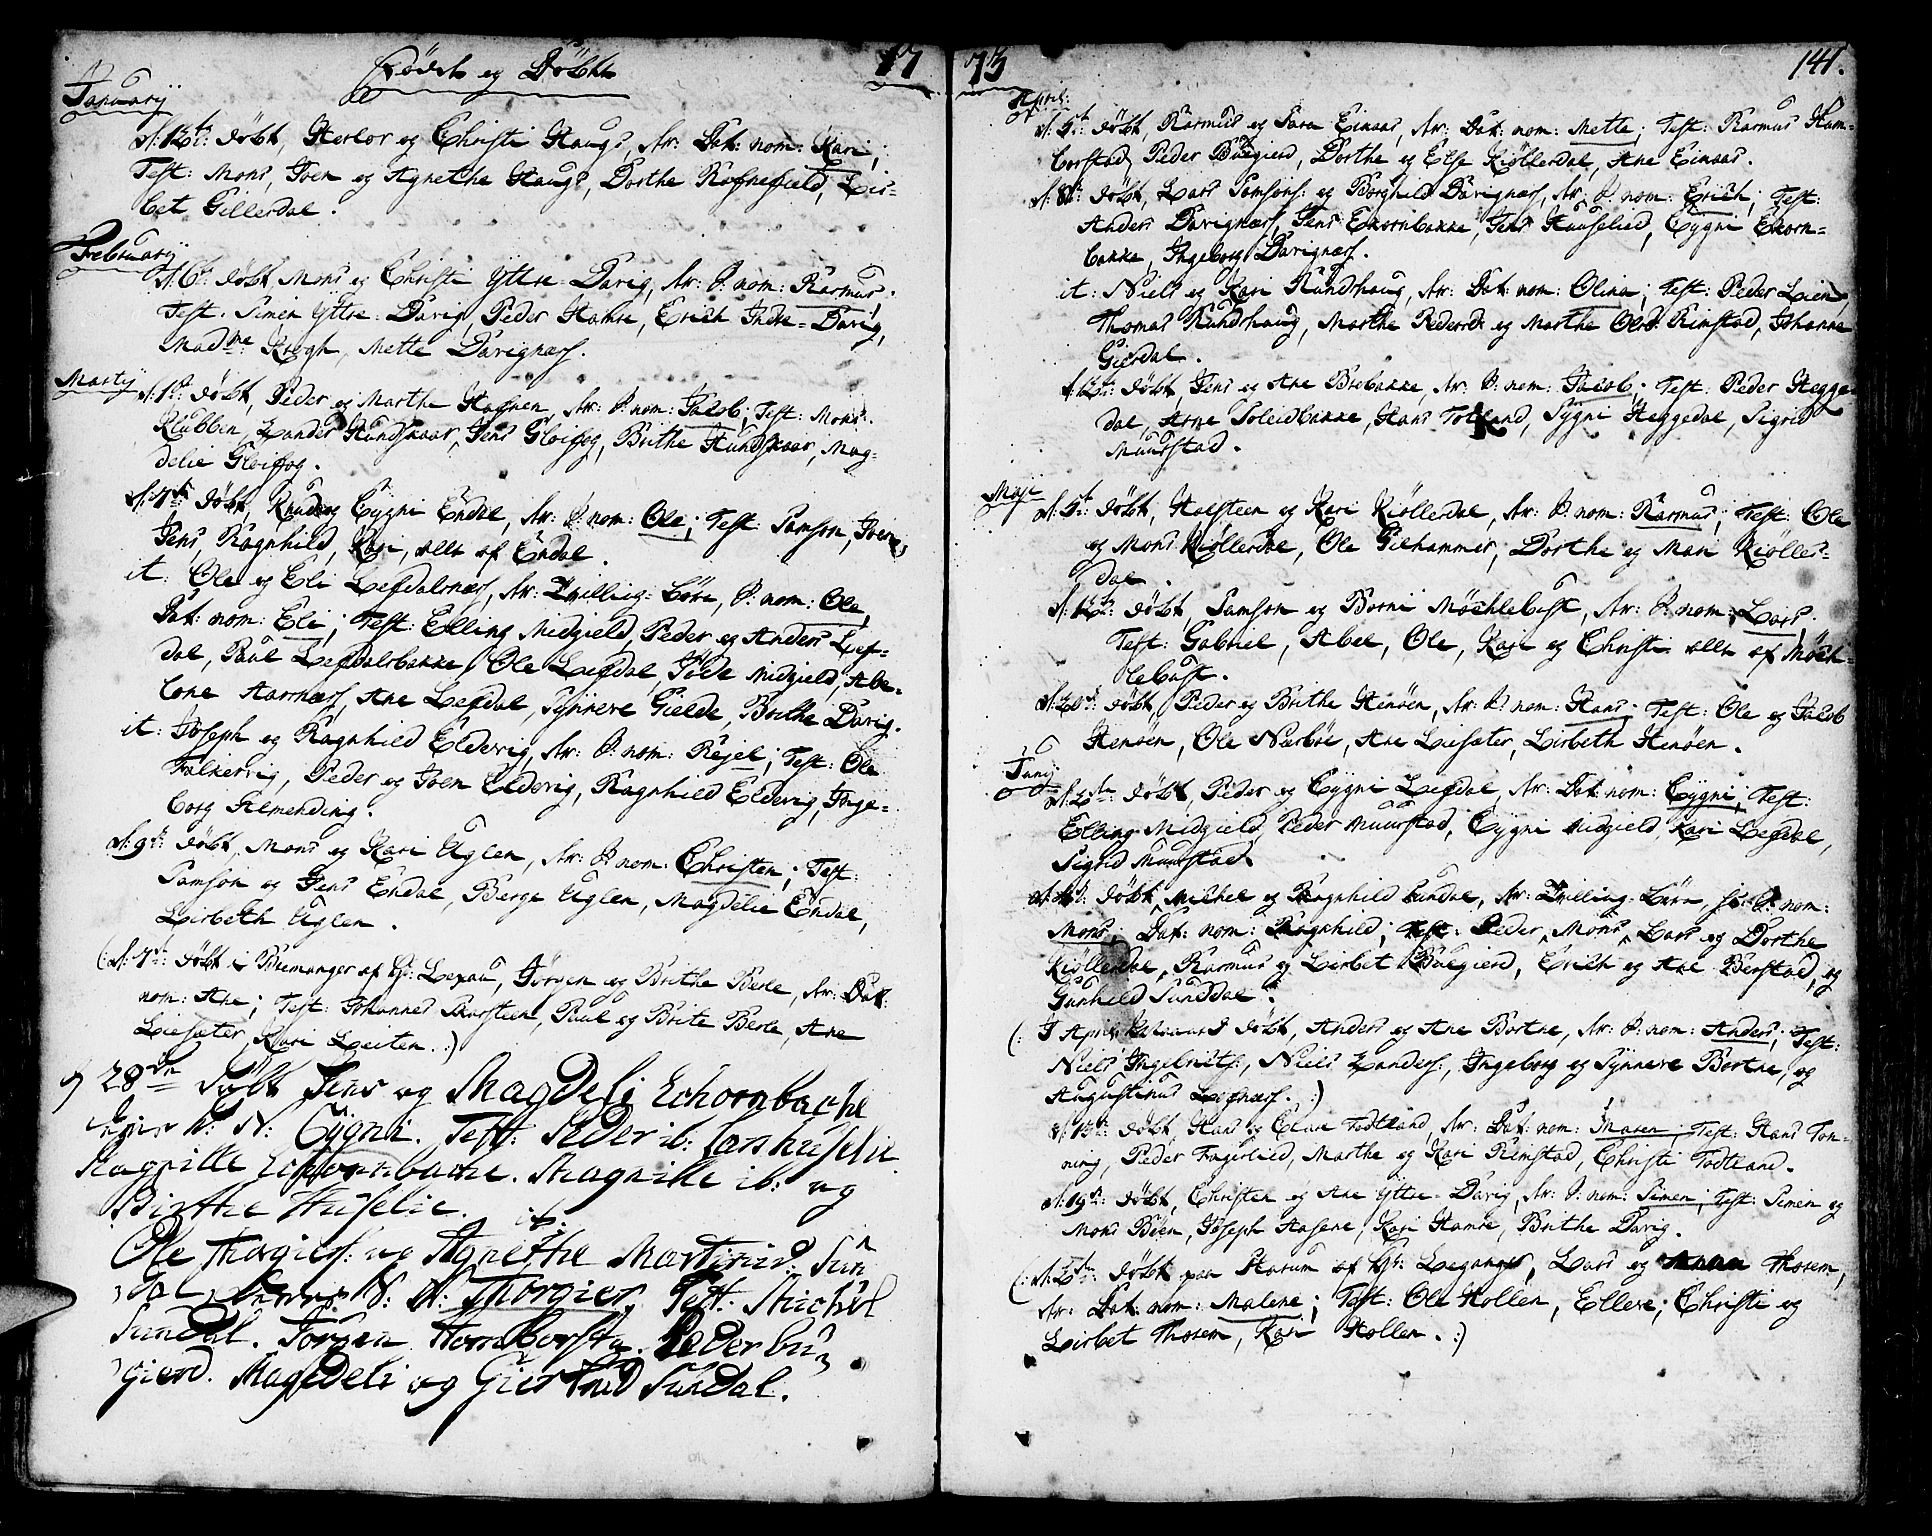 Födte og Döbte 17
January
d: 12t: döbt, Herlov og Christi Haugs, Ar: Dat: nom: Kari;
Test: Mons, Joen og Agnethe Haugs, Dorthe Rafnefjeld, Lis-
bet Gillerdal.
February
d: 6t: döbt Mons og Christi Yttre-Davig, Ar: S: nom: Rasmus.
Test: Simen Yttre-Davig, Peder Hamre, Erich Indre-Davig,
Madme Krogh, Mette Davignæs.
Marty
d: 1st: döbt, Peder og Marthe Hafnen, Ar: S: nom: Jacob; Test: Mons
Klubben, Lander Hundskaar, Jens Gloifog, Brithe Hundskaar, Mag-
delie Gloifog.
d: 7de: döbt, Knud og Cygni Endal, Ar: S: nom: Ole; Test: Samson, Joen,
Jens, Ragnhild, Kari, alle af Endal.
it: Ole og Eli Lefdalsnæs, Ar: Tvilling-börn, S: nom: Ole,
Dat: nom: Eli; Test: Elling Midgield, Peder og Anders Lef-
dal, Paul Lefdalsbakke, Ole Lefdal, Jöde Midgield, Abe-
lone Aarnæs, Ane Lefdal, Synneve Gielde, Brithe Davig.
it: Joseph og Ragnhild Eldevig, Ar: S: nom: Rejel; Test: Ole
Falkevig, Peder og Joen Eldevig, Ragnhild Eldevig, Inge-
borg Almending.
d: 9de: döbt, Mons og Kari Uglen, Ar: S: nom: Christen; Test:
Samson og Jens Endal, Berge Uglen, Magdelie Endal,
Lisbeth Uglen.
(: d: 7de: döbt i Bremanger af Hr: Lexau, Jörgen og Brithe Berle, Ar: Dat:
nom: Ane; Test: Johannes Skarsteen, Paul og Brite Berle, Ane
Liesæter, Kari Leiten. :)
d 28de Döbt Jens og Magdeli Echornbache
N: Cygni. Test: Peder ib: Lars Huselie
Magnille Echornbache. Magnille ib: og
Birthe Huselie.
it:
Ole Thorgiers: og Agnethe Martinid: Sun
dal N: Thorgier, Test: Michel
Sundal. Jörgen Hornborsta. Peder bu
gierd. Magdeli og Giertrud Sundal.
73 141.
April:
d: 5t: döbt, Rasmus og Sara Einaas, Ar: Dat: nom: Mette; Test: Rasmus Hum-
borstad, Peder Buegierd, Dorthe og Else Kiöllerdal, Ane Einaas.
d: 8de: döbt, Lars Samsons: og Borghild Davignæs, Ar: S: nom: Erich; Test:
Anders Davignæs, Jens Ekornbakke, Jens Huuselied, Cygni Ekorn-
bakke, Ingeborg Davignæs.
it: Niels og Kari Rundehaug, Ar: Dat: nom: Olina; Test: Peder Leen,
Thomas Rundehaug, Marthe Pedersd: og Marthe Olsd: Rimstad, Johanne
Gierdal.
d: 12te: döbt, Jens og Ane Brebakke, Ar: S: nom: Jacob; Test: Peder Hegge-
dal, Arne Soleidbakke, Hans Totland, Sygni Heggedal, Sigrid
Muurstad.
Maji
d: 5t: döbt, Halsteen og Kari Kiöllerdal, Ar: S: nom: Rasmus; Test: Ole
og Mons Kiöllerdal, Ole Giehammer, Dorthe og Mari Kiöller-
dal.
d: 12te: döbt, Samson og Borni Möchlebust, Ar: S: nom: Lars.
Test: Gabriel, Abel, Ole, Kari og Christi alle af Möch-
lebust.
d: 20de: döbt, Peder og Brithe Henöen, Ar: S: nom: Hans; Test: Ole og Jacob
Henöen, Ole Nærböe, Ane Liesæter, Lisbeth Henöen.
Juny
d: 2de: döbt, Peder og Cygni Lefdal, Ar: Dat: nom: Cygni; Test:
Elling Midgield, Peder Muurstad, Cygni Midgield, Kari Lefdal,
Sigrid Muurstad.
döbt, Michel og Ragnhild Sundal, Ar: Tvilling-börn, S: nom:
Mons; Dat: nom: Ragnhild; Test: Peder, Mons, Lars og Dorthe
Kiöllerdal, Rasmus og Lisbet Buegierd, Erich og Ane Berstad, og
Gunhild Sunddal.
(: I April döbt, Anders og Ane Bortne, Ar: S: nom: Anders; Test:
Niels Ingebrits:, Niels Landers:, Ingeborg og Synneve Bortne, og
Augustinus Lefnæs. :)
d: 13de: döbt, Hans og Eline Todtland, Ar: Dat: nom: Maren; Test: Hans Ton-
ning, Peder Fagerlied, Marthe og Kari Rimstad, Christi Todtland.
d: 19de: döbt, Christen og Ane Yttre-Davig, Ar: S: nom: Simen; Test: Simen og
Mons Böen, Joseph Aasene, Kari Hamre, Brithe Davig.
(: d: 2de: döbt paa Starum af Hr: Leganger, Lars og Thorem,
Ar: Dat: nom: Malene; Test: Ole Hollen, Ellere, Christi og
Lisbet Thorem, Kari Hollen. :)